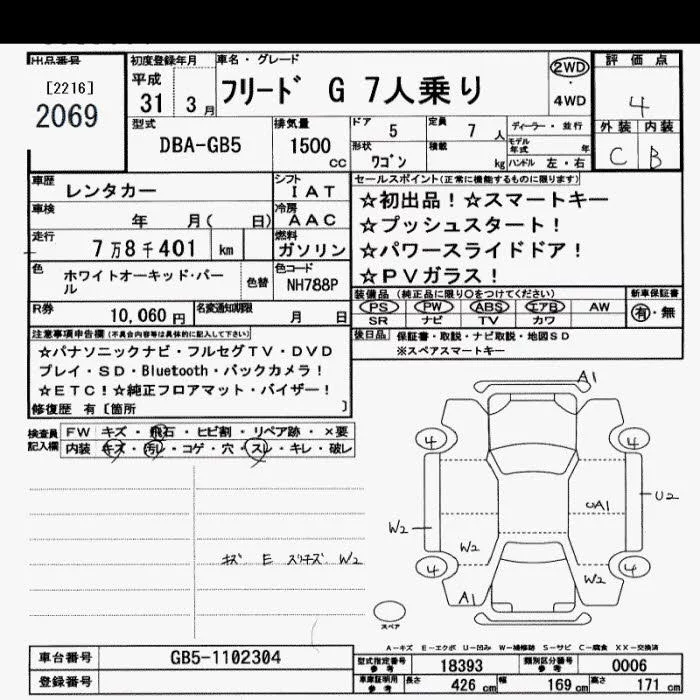 出品番号
[2216]
2069
初度登録年月
平成
31 3月
車名・グレード
フリード G 7人乗り
2WD
・
4WD
評価点
4
外装 内装
C B
型式
DBA-GB5
排気量
1500
cc
ドア 5
定員 7人
形状 ワゴン
積載 kg
ディーラー・並行
モデル年式 年
ハンドル 左・右
車歴 レンタカー
シフト IAT
車検 年 月( 日)
冷房 AAC
走行 7万8千401 km
燃料 ガソリン
色 ホワイトオーキッド・パール
色替
色コード NH788P
R券 10,060円
名変通知期限 月 日
セールスポイント(正常に機能するものに限ります)
☆初出品!☆スマートキー
☆プッシュスタート!
☆パワースライドドア!
☆PVガラス!
装備品 (純正品に限り〇をつけてください)
PS PW ABS エアB AW
SR ナビ TV カワ
新車保証書
有・無
後日品 保証書・取説・ナビ取説・地図SD
※スペアスマートキー
注意事項申告欄 (不具合内容等は具体的に記入して下さい)
☆パナソニックナビ・フルセグTV・DVD
プレイ・SD・Bluetooth・バックカメラ!
☆ETC!☆純正フロアマット・バイザー!
修復歴 有〔箇所 〕
検査員記入欄
FW キズ・飛石・ヒビ割・リペア跡・×要
内装 キズ・汚レ・コゲ・穴・スレ・キレ・破レ
キズ E スリキズ W2
A1
4 4
U2
UA1
W2
W2
4 4
W2
A1
スペア
A-キズ E-エクボ U-凹み W-補修跡 S-サビ C-腐食 XX-交換済
車台番号 GB5-1102304
登録番号
型式指定番号 参考 18393
類別区分番号 参考 0006
車庫証明用 参考 長さ 426cm 幅 169cm 高さ 171cm